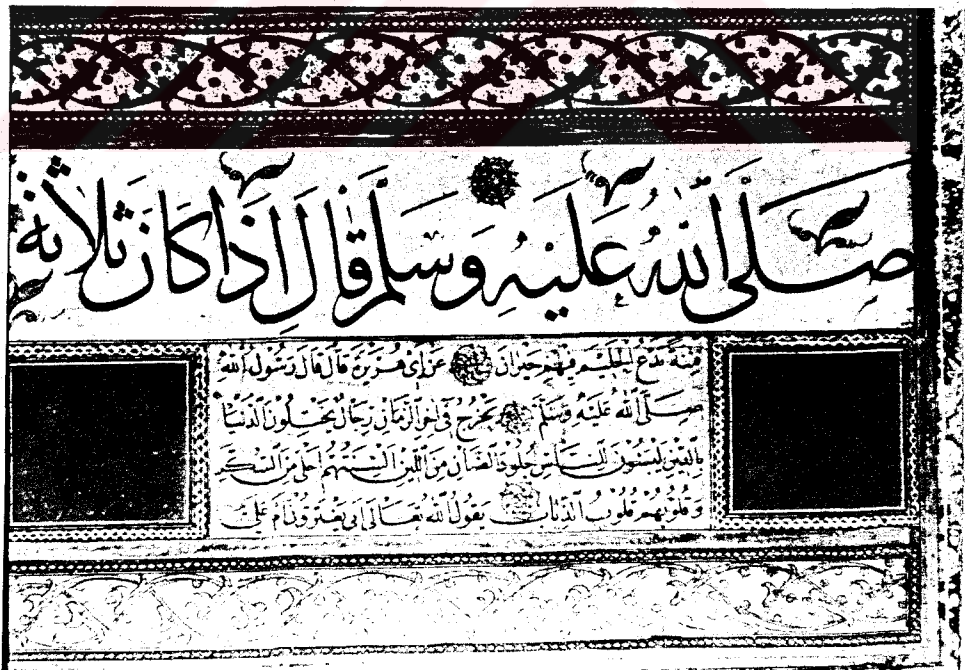 صَلَّى اللهُ عَلَيْهِ وَسَلَّمَ قَالَ اِذَا كَانَ ثَلَاثَةٌ
فتنة تدع الحليم فيهم حيران عن ابى هريرة قال قال رسول الله
صلى الله عليه وسلم يخرج فى اخر الزمان رجال يختلون الدنيا
بالدين يلبسون للناس جلود الضان من اللين السنتهم احلى من السكر
وقلوبهم قلوب الذئاب يقول الله تعالى ابى يغترون ام على